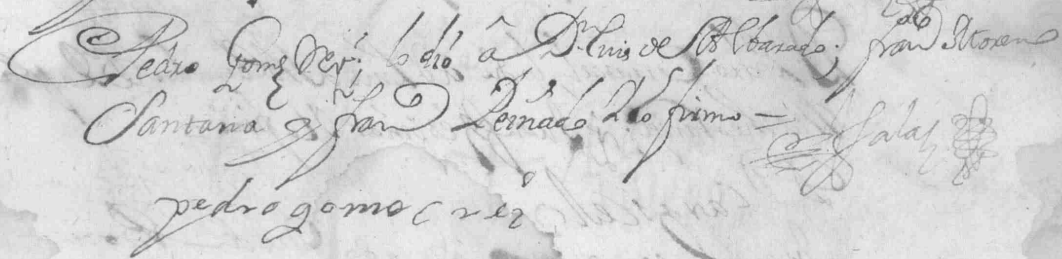 Pedro Gomez Rey; lo dió â Dn. Luis de Albarado; fran.co Moren
Santana y fran Peinado Lo firmo = Salas
pedro gomez rei